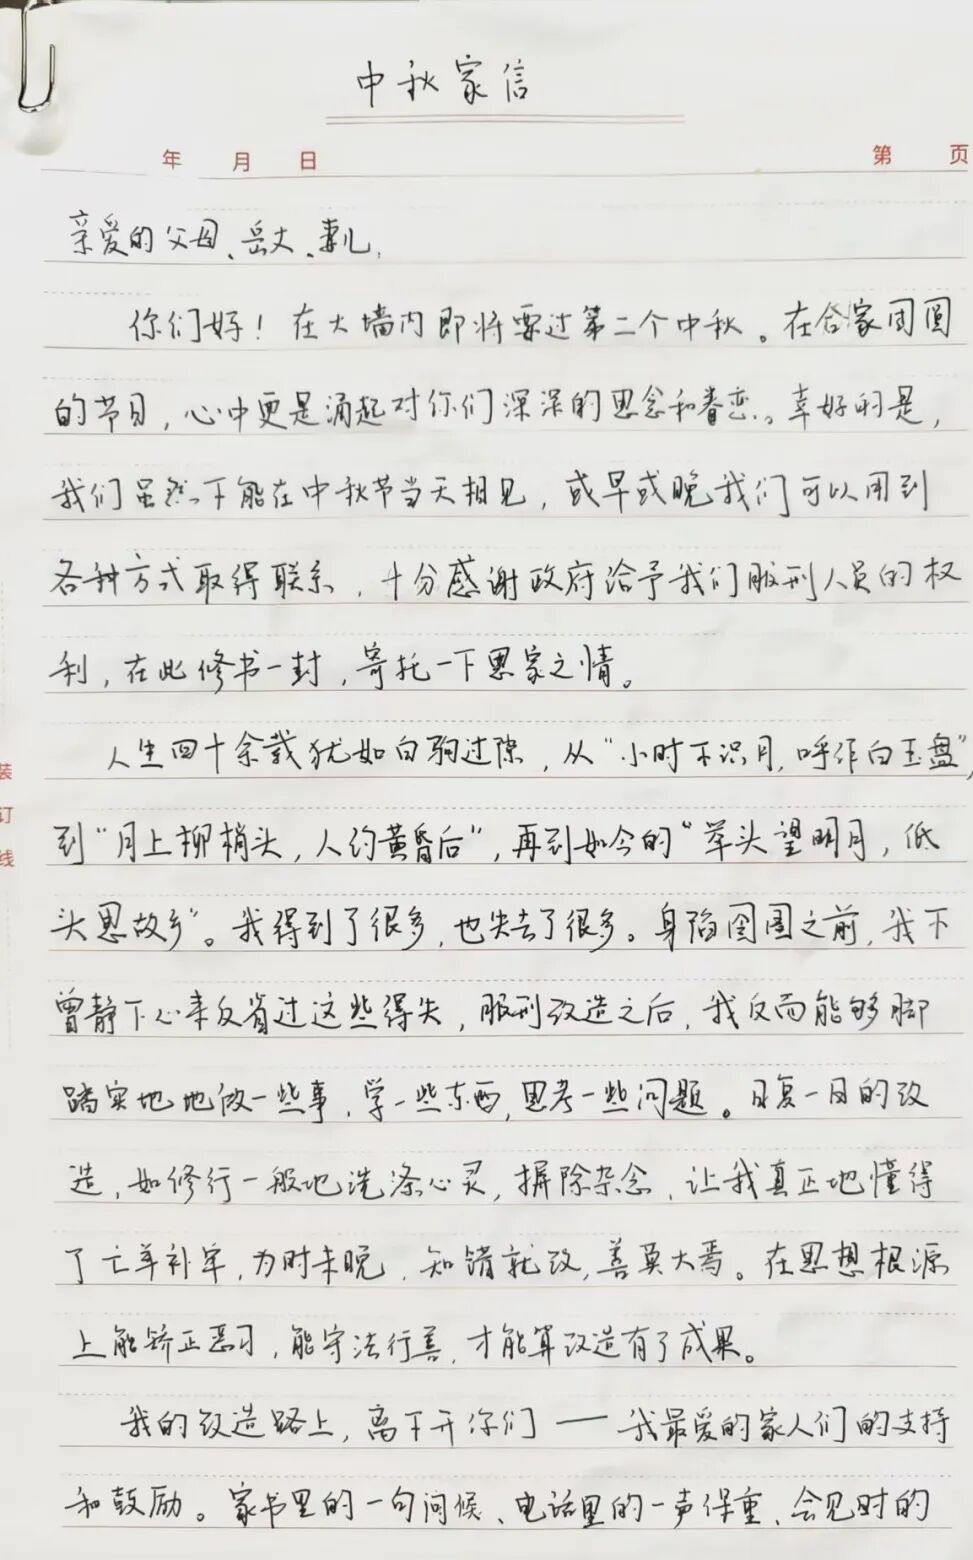 中秋家信
年 月 日 第 页
亲爱的父母、岳丈、妻儿,
你们好！在大墙内即将要过第二个中秋。在合家团圆
的节日,心中更是涌起对你们深深的思念和眷恋。幸好的是,
我们虽然不能在中秋节当天相见,或早或晚我们可以用到
各种方式取得联系,十分感谢政府给予我们服刑人员的权
利,在此修书一封,寄托一下思家之情。
人生四十余载犹如白驹过隙,从“小时不识月,呼作白玉盘”,
到“月上柳梢头,人约黄昏后”,再到如今的“举头望明月,低
头思故乡”。我得到了很多,也失去了很多。身陷囹圄之前,我不
曾静下心来反省过这些得失,服刑改造之后,我反而能够脚
踏实地地做一些事,学一些东西,思考一些问题。日复一日的改
造,如修行一般地洗涤心灵,摒除杂念,让我真正地懂得
了亡羊补牢,为时未晚,知错就改,善莫大焉。在思想根源
上能矫正恶习,能守法行善,才能算改造有了成果。
我的改造路上,离不开你们——我最爱的家人们的支持
和鼓励。家书里的一句问候、电话里的一声保重、会见时的
装
订
线